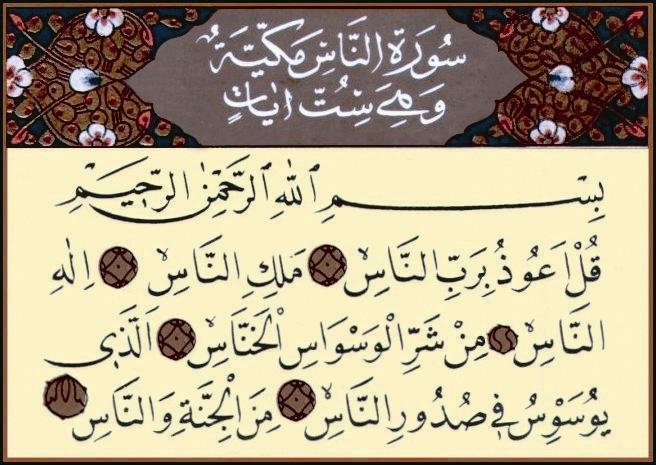 سُورَةُ النَّاسِ مَكِّيَّةٌ
وَهِيَ سِتُّ اٰيَاتٍ
بِسْمِ اللّٰهِ الرَّحْمٰنِ الرَّحٖيمِ
قُلْ اَعُوذُ بِرَبِّ النَّاسِۙ مَلِكِ النَّاسِۙ اِلٰهِ
النَّاسِۙ مِنْ شَرِّ الْوَسْوَاسِ الْخَنَّاسِۙ اَلَّذٖى
يُوَسْوِسُ فٖى صُدُورِ النَّاسِۙ مِنَ الْجِنَّةِ وَالنَّاسِ